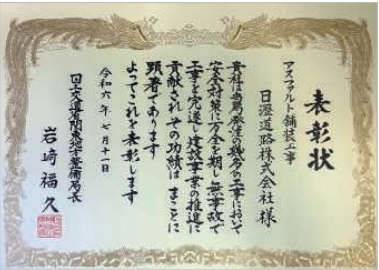 表彰状
アスファルト舗装工事
日澄道路株式会社様
貴社は当局発注の幾多の工事において
安全対策に万全を期し無事故で
工事を完遂し建設事業の推進に
貢献されその功績はまことに
顕著であります
よってこれを表彰します
令和六年七月十一日
国土交通省関東地方整備局長
岩﨑福久